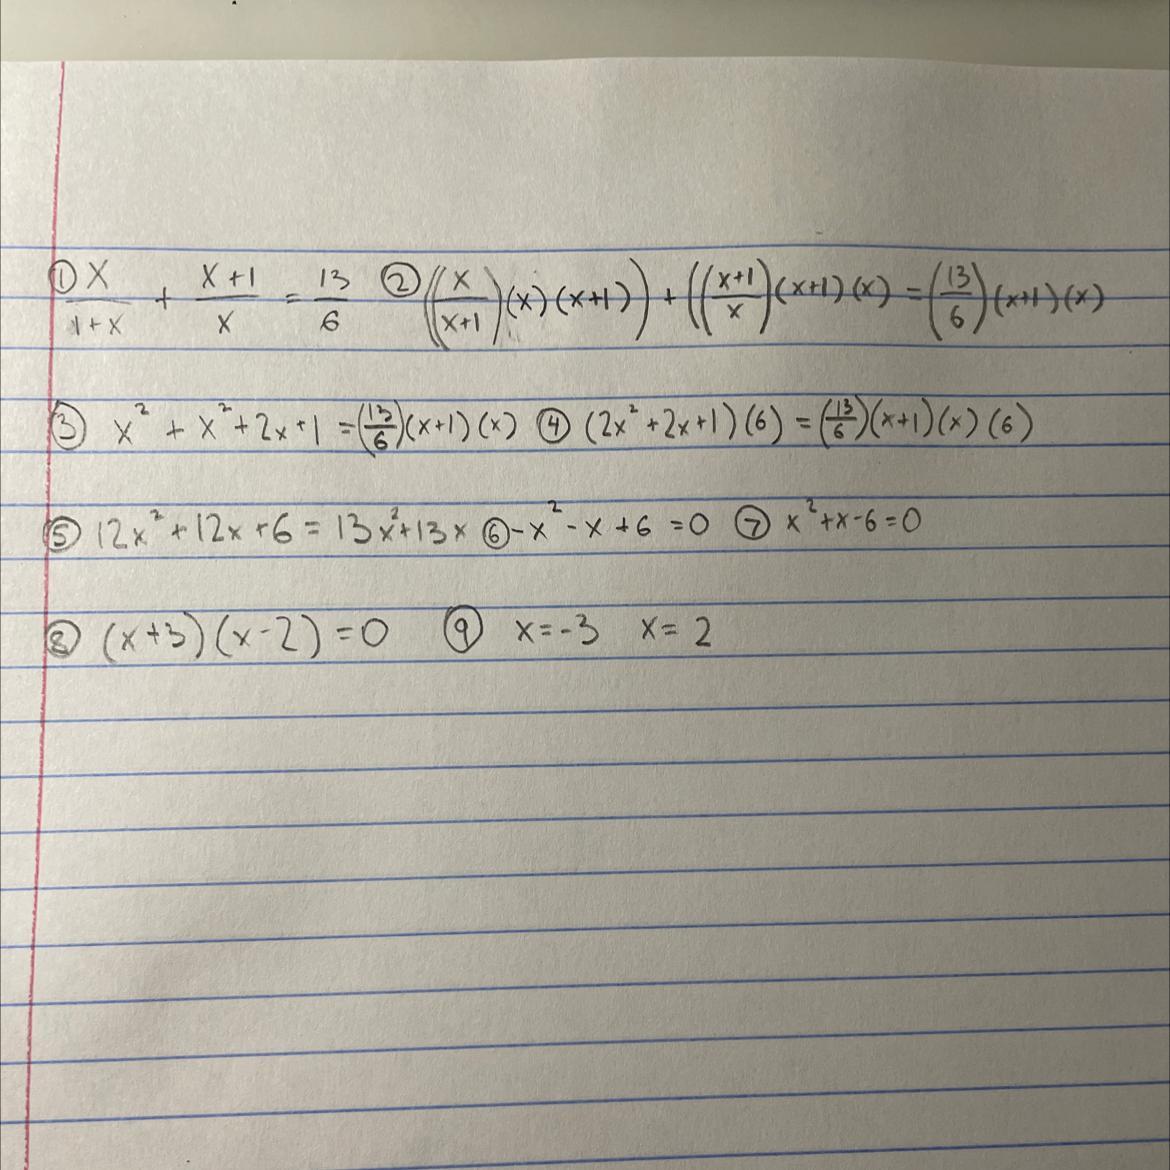 ① x/(1+x) + (x+1)/x = 13/6 ② ((x/(x+1))(x)(x+1)) + (((x+1)/x)(x+1)(x) = (13/6)(x+1)(x)
③ x² + x² + 2x + 1 = (13/6)(x+1)(x) ④ (2x² + 2x + 1)(6) = (13/6)(x+1)(x)(6)
⑤ 12x² + 12x + 6 = 13x² + 13x ⑥ -x² - x + 6 = 0 ⑦ x² + x - 6 = 0
⑧ (x+3)(x-2) = 0 ⑨ x = -3 x = 2